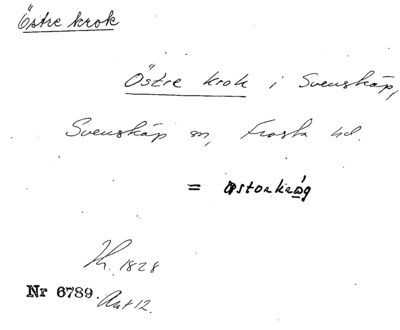 Östre krok
Östre krok i Svenskåp,
Svenskåp sn, Frosta hd.
= østɔrkråg
Kr. 1828
Nr 6789. Akt 12.